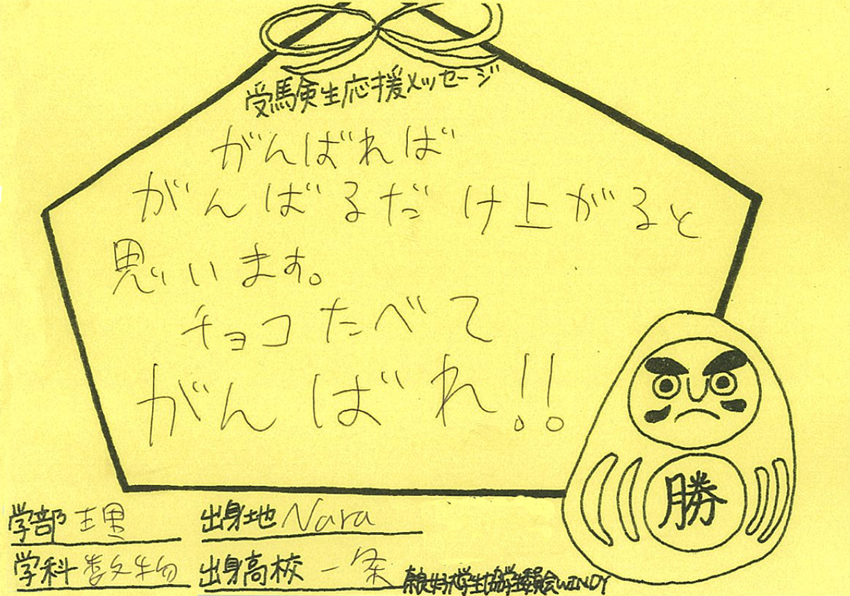 受験生応援メッセージ
がんばれば
がんばるだけ上がると
思います。
チョコたべて
がんばれ!!
勝
学部 理
出身地 Nara
学科 数物
出身高校 一条
奈良女子大学生協学生委員会WINDY